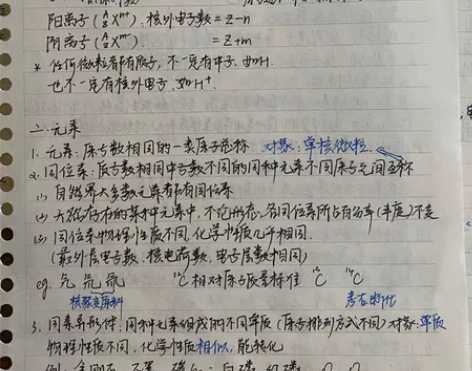 阳离子(ᴬ_Z Xⁿ⁺):核外电子数=Z-n
阴离子(ᴬ_Z Xᵐ⁻) =Z+m
* 任何微粒都有质子,不一定有中子,如H.
也不一定有核外电子,如H⁺.
二.元素
1.元素:质子数相同的一类原子总称 对象:单核微粒
2.同位素:质子数相同中子数不同的同种元素不同原子之间互称
(1) 自然界大多数元素都有同位素
(2) 天然存在的某种元素中,不论形态,各同位素所占百分率(丰度)不变
(3) 同位素物理性质不同,化学性质几乎相同.
(最外层电子数、核电荷数、电子层数相同)
eg. 氕 氘 氚 ¹²C相对原子质量标准 ¹³C ¹⁴C
核聚变原料 考古断代
3.同素异形体:同种元素组成的不同单质(原子排列方式不同)对象:单质
物理性质不同,化学性质相似,能转化
例:金刚石